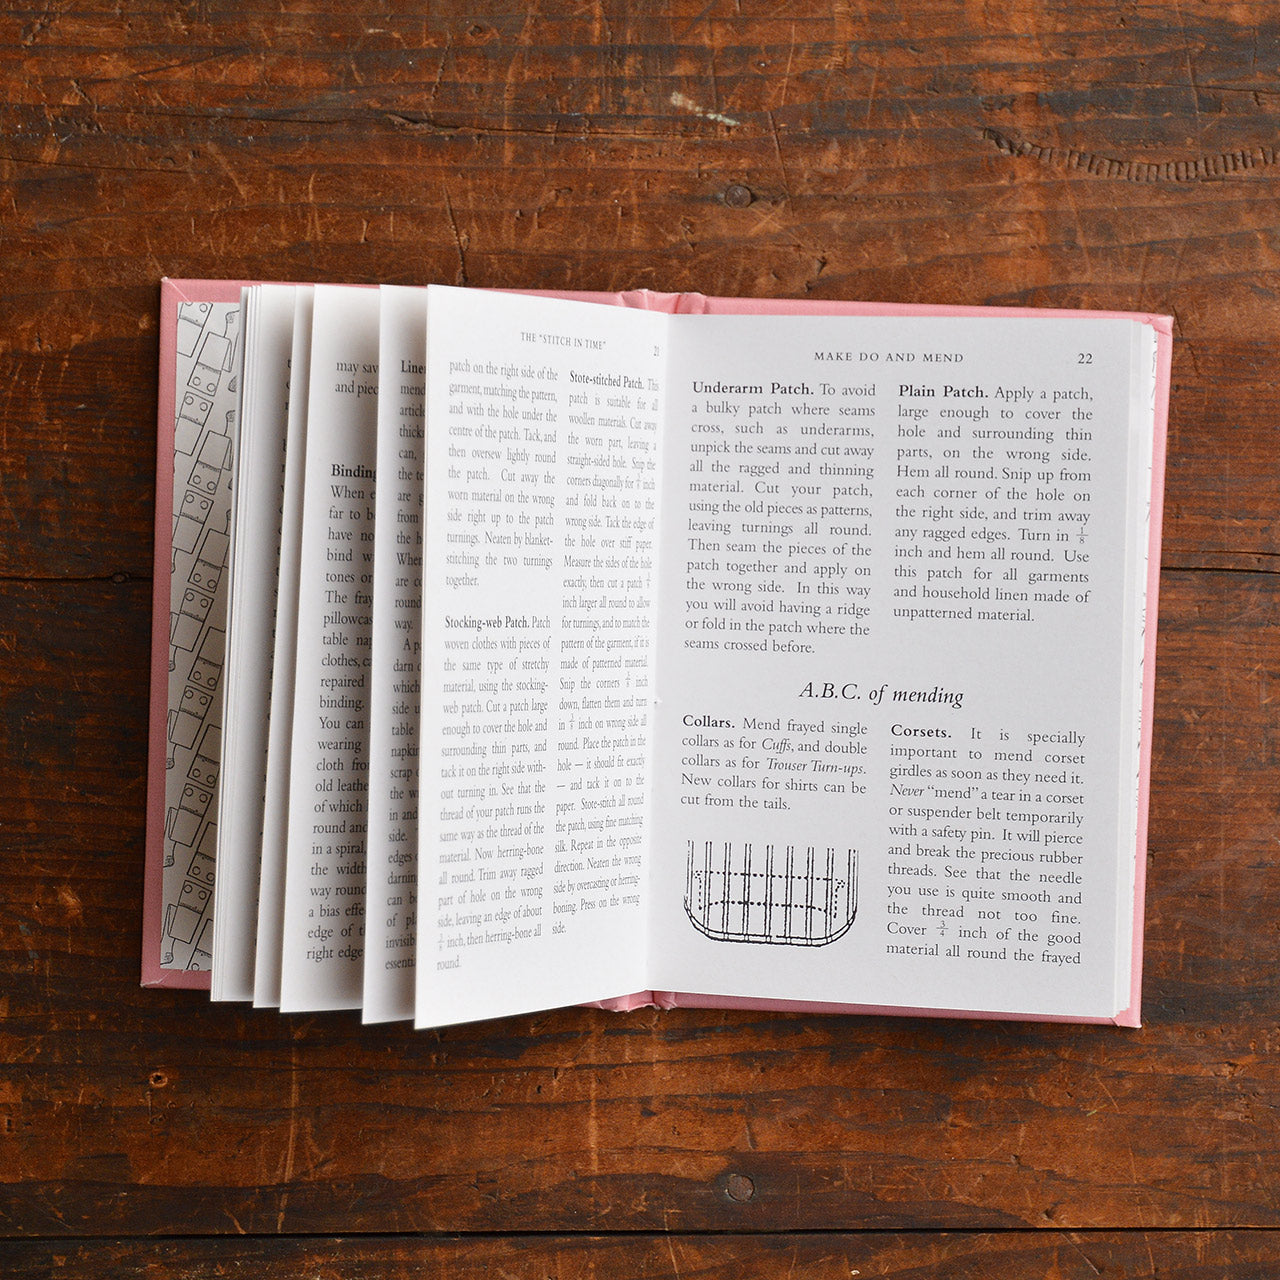 may sav
and piec
Binding
When
far to b
have no
bind w
tones or
The fray
pillowcas
table na
clothes, c
repaired
binding.
You can
wearing
cloth fro
old leathe
of which
round and
in a spiral,
the width
way round
a bias effe
edge of t
right edge
Line
mend
article
thick
can,
the te
are g
from
the h
When
are co
round
way.
A p
darn
which
side u
table
napkin
scrap
the w
in and
side.
edges
darning
can b
of pl
invisib
essenti
THE "STITCH IN TIME"
21
patch on the right side of the
garment, matching the pattern,
and with the hole under the
centre of the patch. Tack, and
then oversew lightly round
the patch. Cut away the
worn material on the wrong
side right up to the patch
turnings. Neaten by blanket-
stitching the two turnings
together.
Stocking-web Patch. Patch
woven clothes with pieces of
the same type of stretchy
material, using the stocking-
web patch. Cut a patch large
enough to cover the hole and
surrounding thin parts, and
tack it on the right side with-
out turning in. See that the
thread of your patch runs the
same way as the thread of the
material. Now herring-bone
all round. Trim away ragged
part of hole on the wrong
side, leaving an edge of about
inch, then herring-bone all
round.
Stote-stitched Patch. This
patch is suitable for all
woollen materials. Cut away
the worn part, leaving a
straight-sided hole. Snip the
corners diagonally for inch
and fold back on to the
wrong side. Tack the edge of
the hole over stiff paper.
Measure the sides of the hole
exactly, then cut a patch
inch larger all round to allow
for turnings, and to match the
pattern of the garment, if it is
made of patterned material.
Snip the corners inch
down, flatten them and turn
in inch on wrong side all
round. Place the patch in the
hole — it should fit exactly
— and tack it on to the
paper. Stote-stitch all round
the patch, using fine matching
silk. Repeat in the opposite
direction. Neaten the wrong
side by overcasting or herring-
boning. Press on the wrong
side.
MAKE DO AND MEND
22
Underarm Patch. To avoid
a bulky patch where seams
cross, such as underarms,
unpick the seams and cut away
all the ragged and thinning
material. Cut your patch,
using the old pieces as patterns,
leaving turnings all round.
Then seam the pieces of the
patch together and apply on
the wrong side. In this way
you will avoid having a ridge
or fold in the patch where the
seams crossed before.
Plain Patch. Apply a patch,
large enough to cover the
hole and surrounding thin
parts, on the wrong side.
Hem all round. Snip up from
each corner of the hole on
the right side, and trim away
any ragged edges. Turn in 1/8
inch and hem all round. Use
this patch for all garments
and household linen made of
unpatterned material.
A.B.C. of mending
Collars. Mend frayed single
collars as for Cuffs, and double
collars as for Trouser Turn-ups.
New collars for shirts can be
cut from the tails.
Corsets. It is specially
important to mend corset
girdles as soon as they need it.
Never "mend" a tear in a corset
or suspender belt temporarily
with a safety pin. It will pierce
and break the precious rubber
threads. See that the needle
you use is quite smooth and
the thread not too fine.
Cover 3/4 inch of the good
material all round the frayed